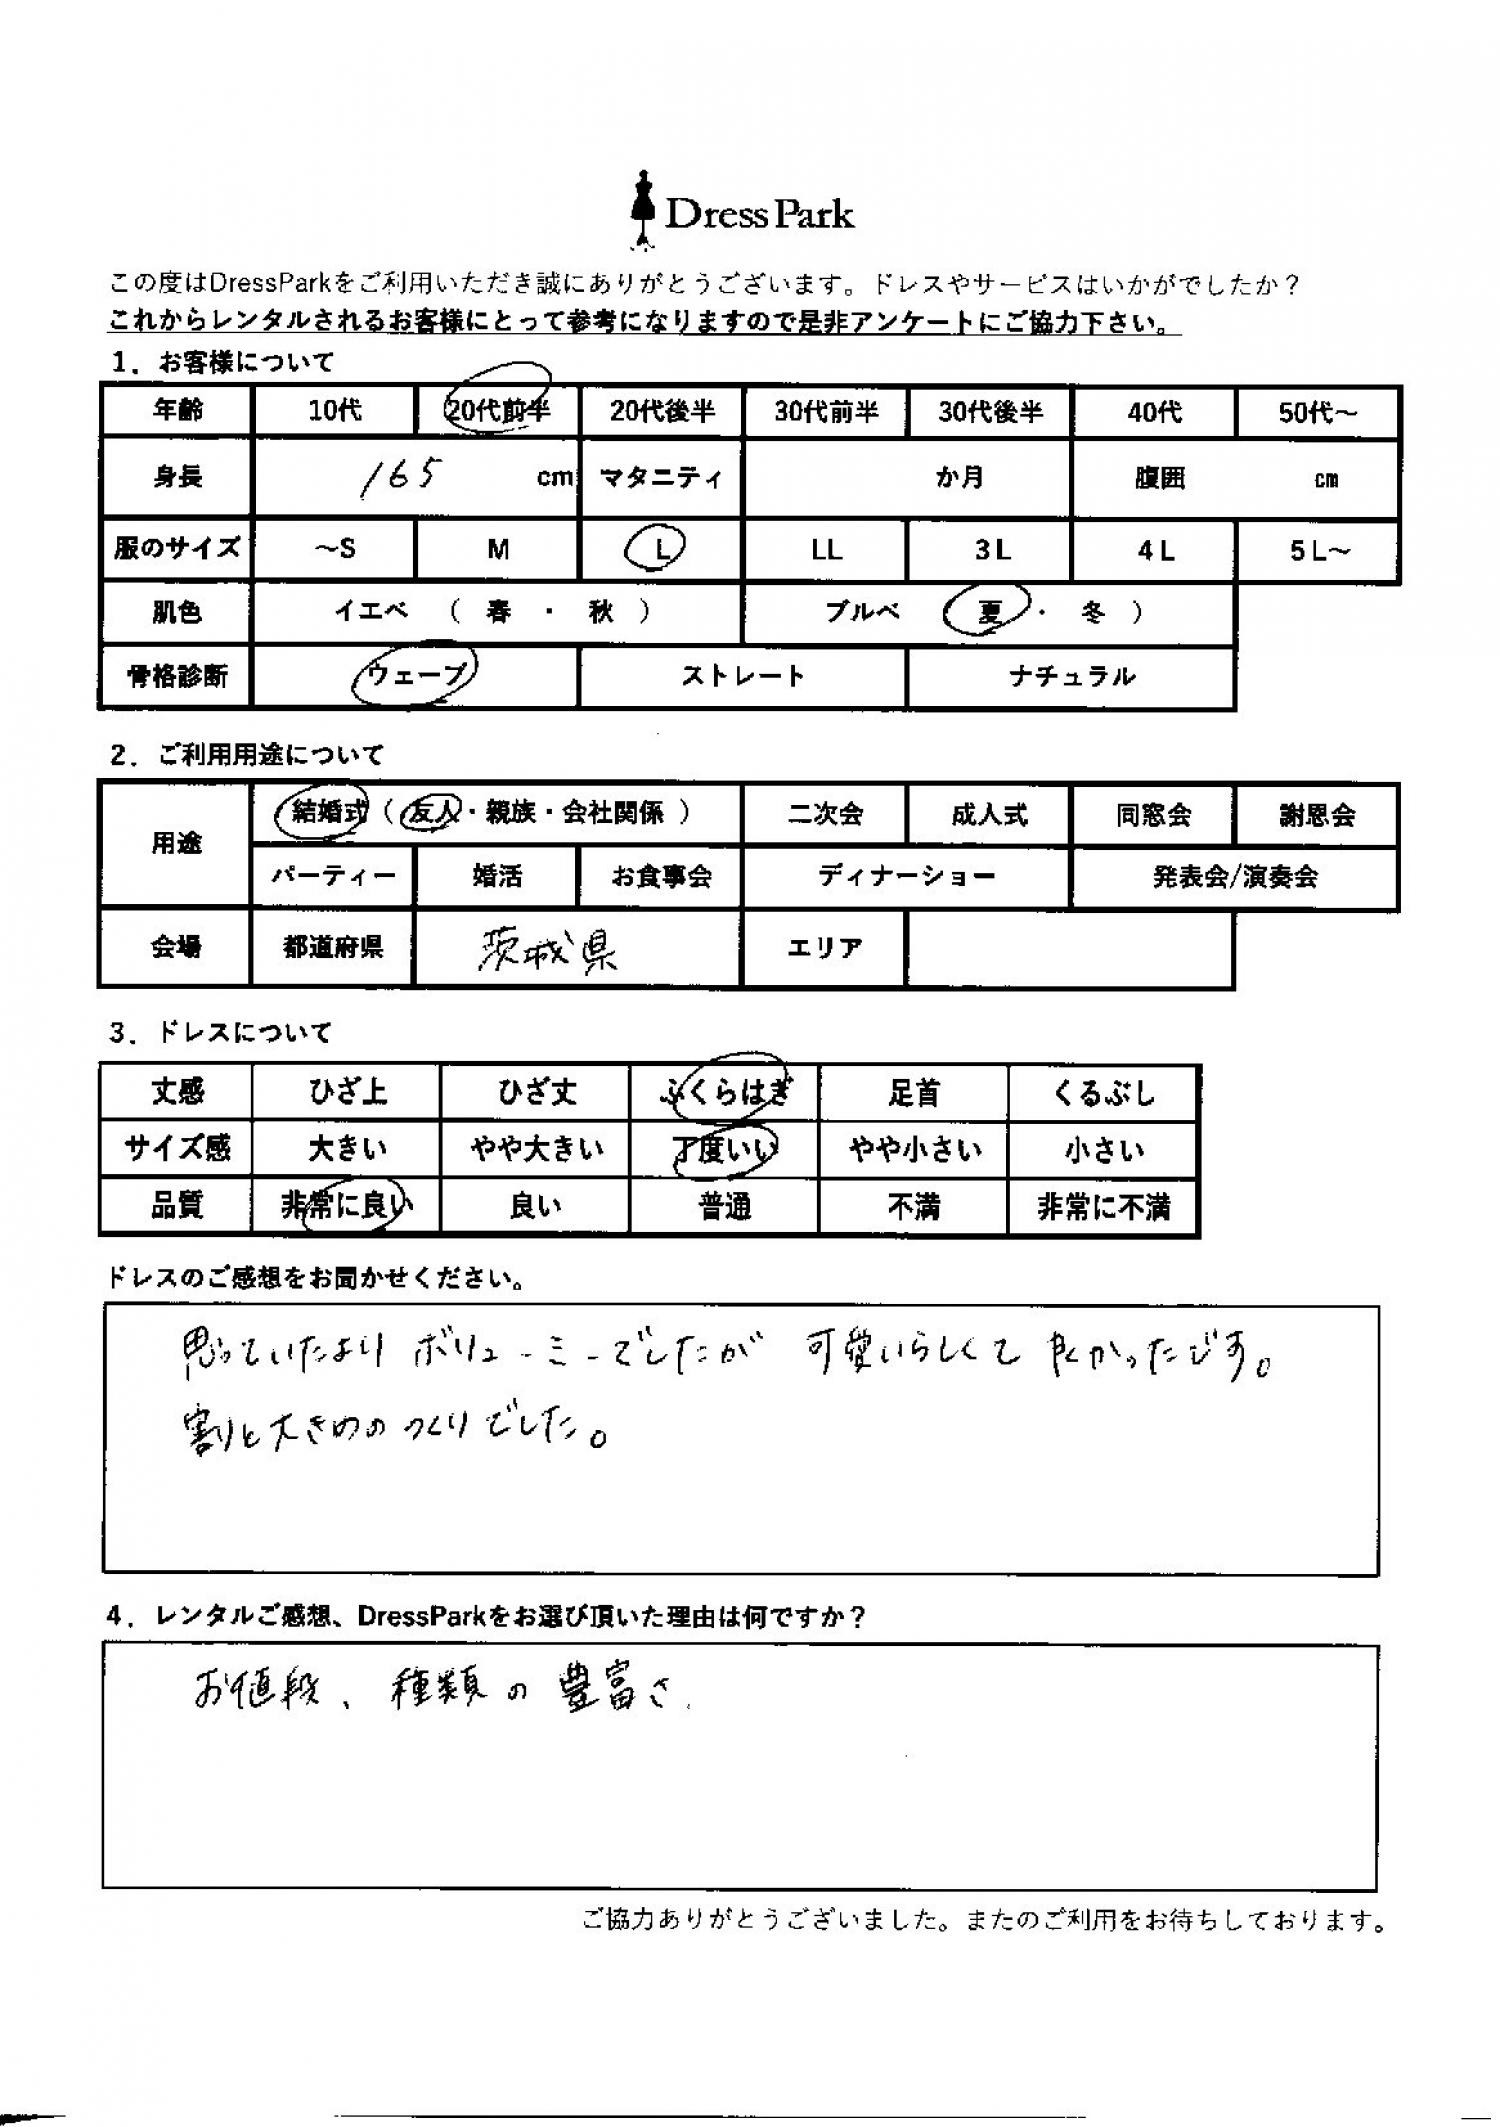 Dress Park
この度はDressParkをご利用いただき誠にありがとうございます。ドレスやサービスはいかがでしたか？
これからレンタルされるお客様にとって参考になりますので是非アンケートにご協力下さい。
1．お客様について
年齢 10代 20代前半 20代後半 30代前半 30代後半 40代 50代～
身長 165 cm マタニティ か月 腹囲 cm
服のサイズ ～S M L LL 3L 4L 5L～
肌色 イエベ （ 春 ・ 秋 ） ブルベ （ 夏 ・ 冬 ）
骨格診断 ウェーブ ストレート ナチュラル
2．ご利用用途について
用途 結婚式（ 友人・親族・会社関係 ） 二次会 成人式 同窓会 謝恩会
パーティー 婚活 お食事会 ディナーショー 発表会/演奏会
会場 都道府県 茨城県 エリア
3．ドレスについて
丈感 ひざ上 ひざ丈 ふくらはぎ 足首 くるぶし
サイズ感 大きい やや大きい 丁度いい やや小さい 小さい
品質 非常に良い 良い 普通 不満 非常に不満
ドレスのご感想をお聞かせください。
思っていたより ボリューミーでしたが 可愛いらしくて 良かったです。
割と大きめの つくりでした。
4．レンタルご感想、DressParkをお選び頂いた理由は何ですか？
お値段、種類の豊富さ
ご協力ありがとうございました。またのご利用をお待ちしております。